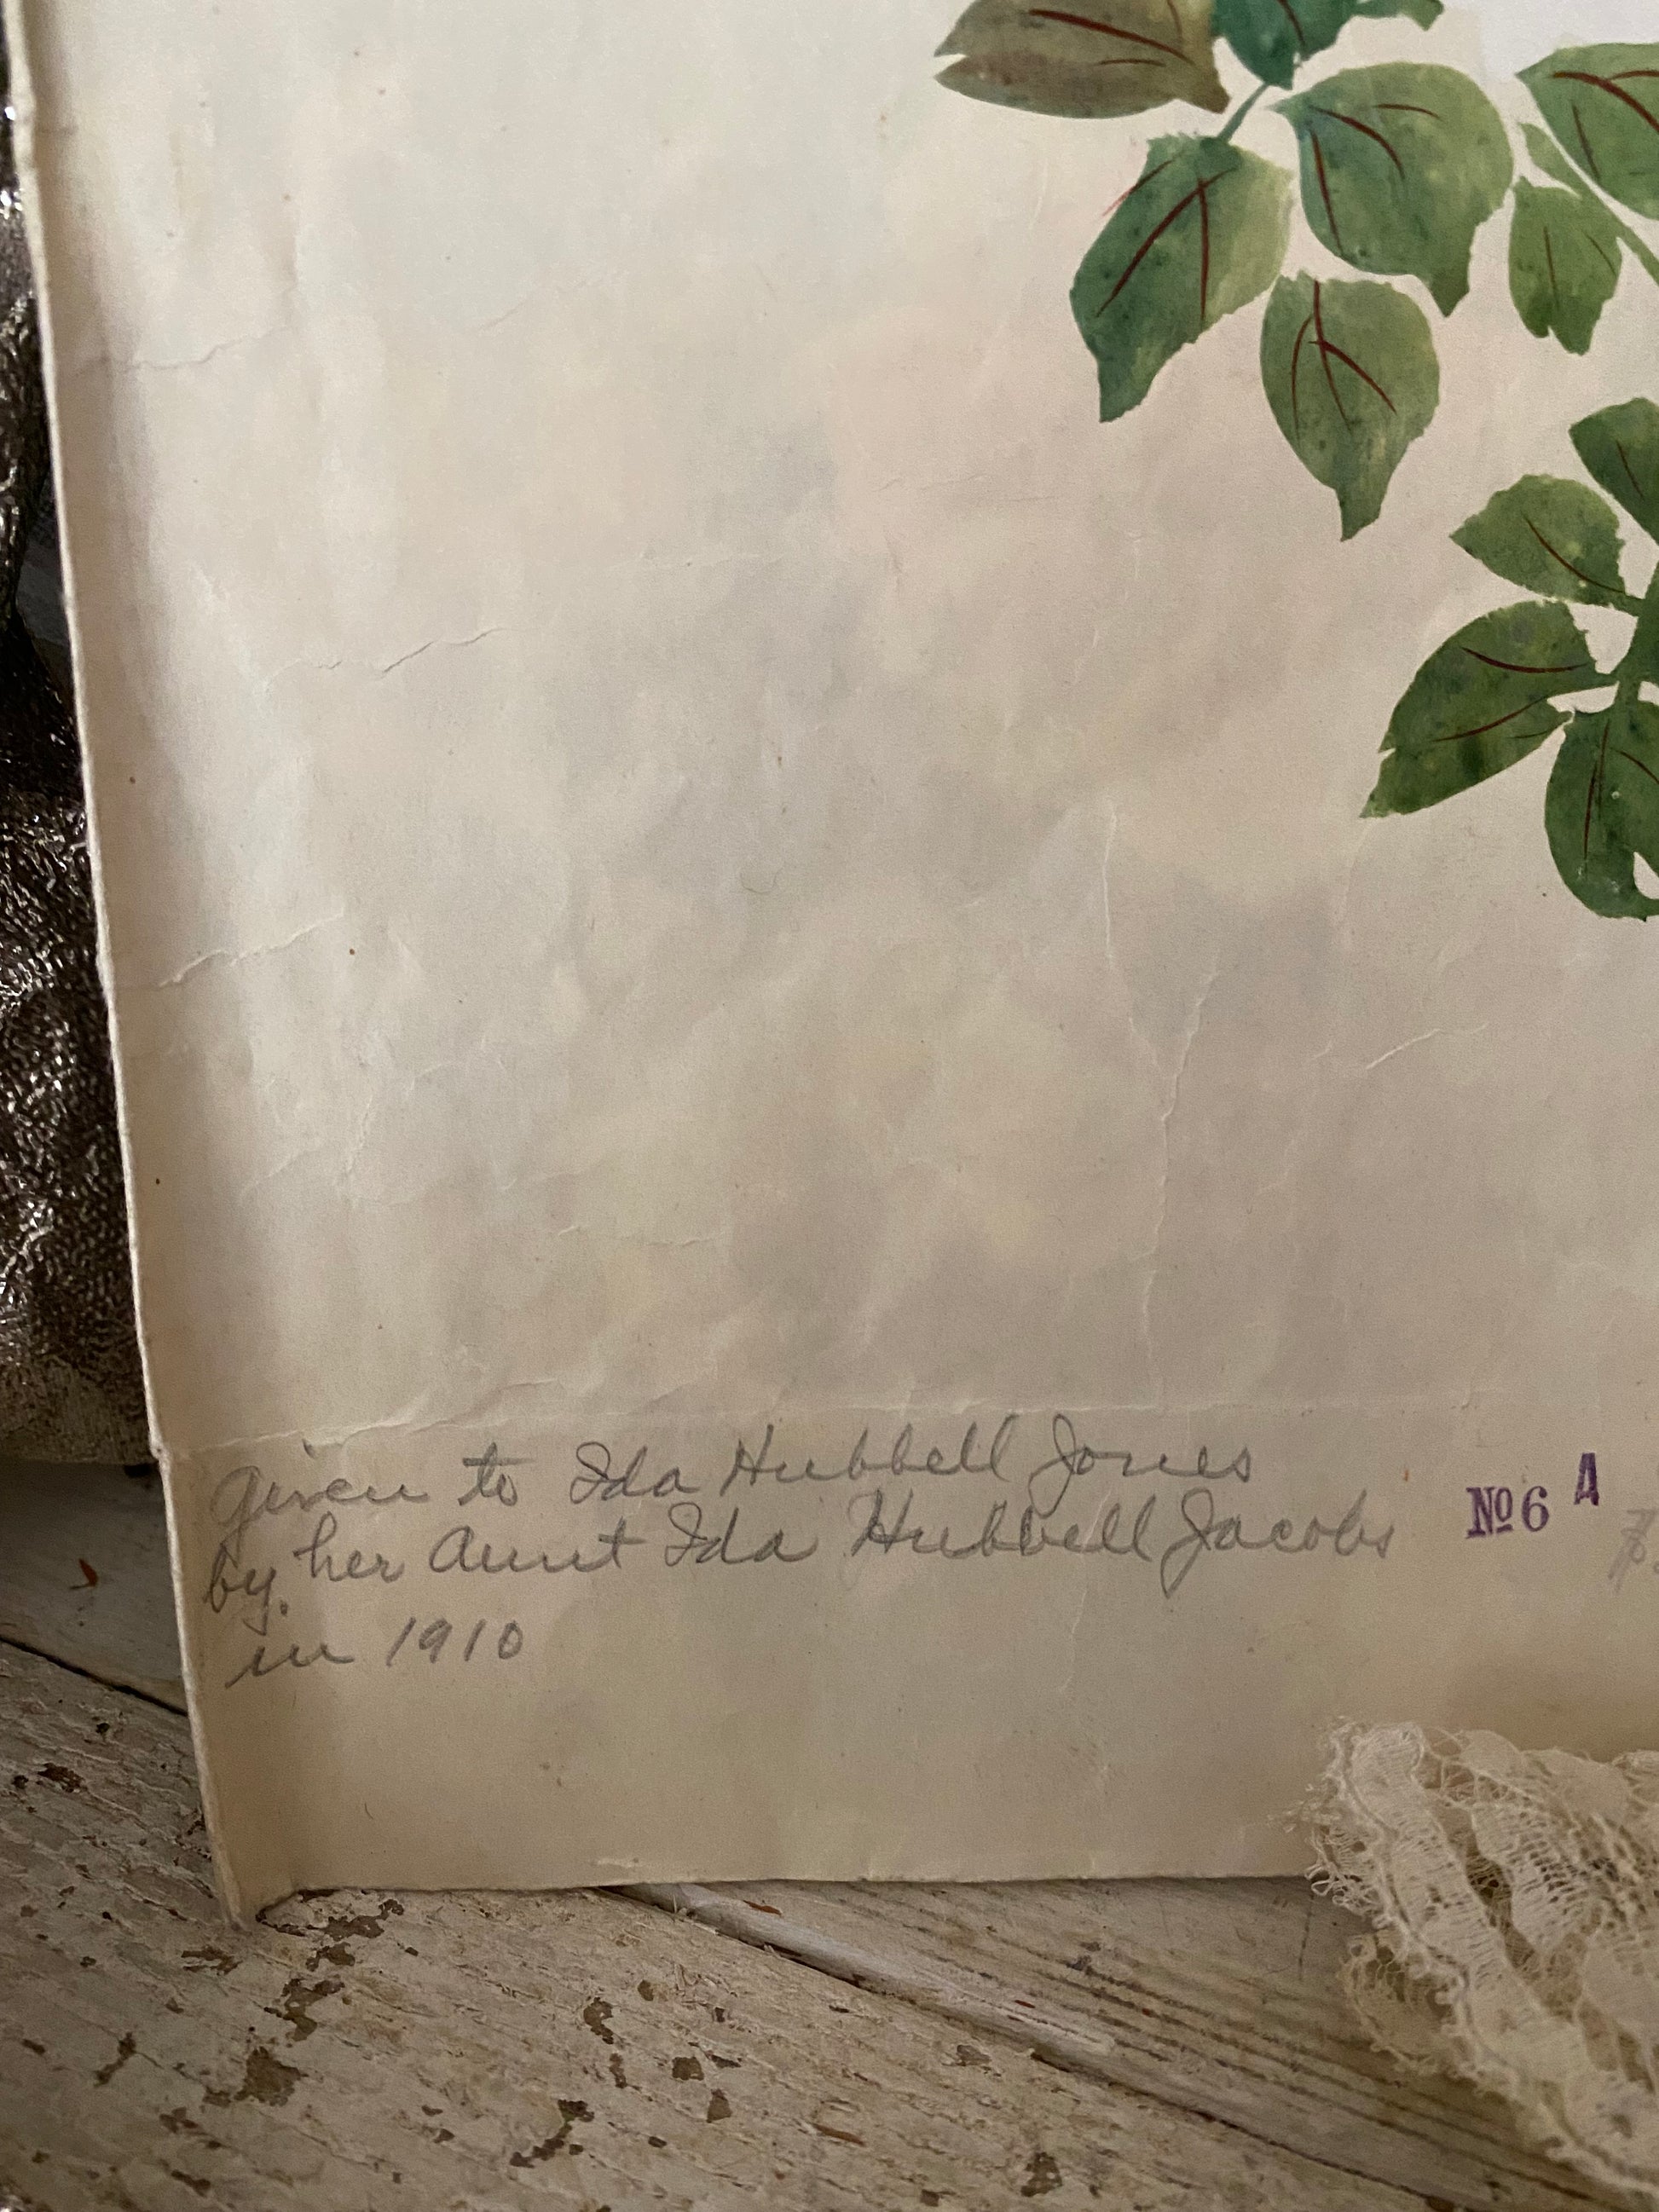 given to Ida Hubbell Jones
by her Aunt Ida Hubbell Jacobs
in 1910
№6 A